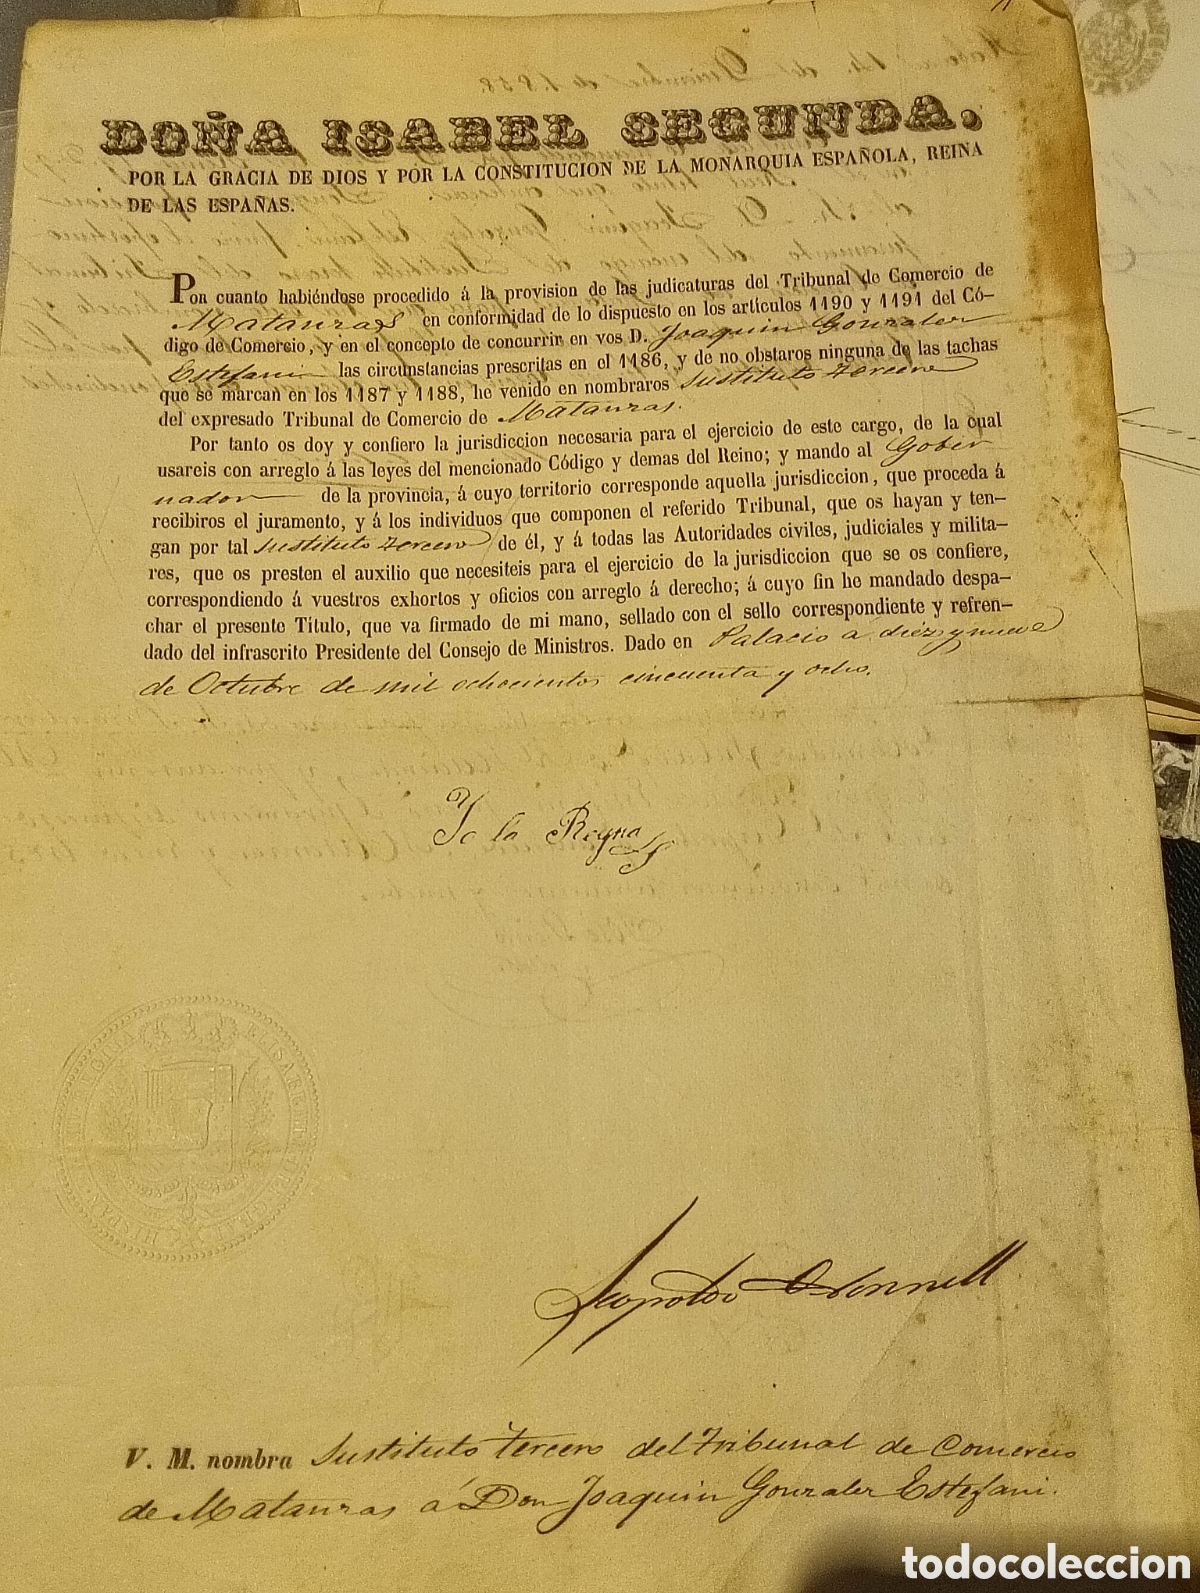 DOÑA ISABEL SEGUNDA,
POR LA GRACIA DE DIOS Y POR LA CONSTITUCION DE LA MONARQUIA ESPAÑOLA, REINA
DE LAS ESPAÑAS.
Por cuanto habiéndose procedido á la provision de las judicaturas del Tribunal de Comercio de
Matanzas en conformidad de lo dispuesto en los artículos 1190 y 1191 del Có-
digo de Comercio, y en el concepto de concurrir en vos D. Joaquin Gonzalez
Estefani las circunstancias prescritas en el 1186, y de no obstaros ninguna de las tachas
que se marcan en los 1187 y 1188, he venido en nombraros Sustituto tercero
del expresado Tribunal de Comercio de Matanzas.
Por tanto os doy y confiero la jurisdiccion necesaria para el ejercicio de este cargo, de la cual
usareis con arreglo á las leyes del mencionado Código y demas del Reino; y mando al Gober
nador de la provincia, á cuyo territorio corresponde aquella jurisdiccion, que proceda á
recibiros el juramento, y á los individuos que componen el referido Tribunal, que os hayan y ten-
gan por tal Sustituto tercero de él, y á todas las Autoridades civiles, judiciales y milita-
res, que os presten el auxilio que necesiteis para el ejercicio de la jurisdiccion que se os confiere,
correspondiendo á vuestros exhortos y oficios con arreglo á derecho; á cuyo fin he mandado despa-
char el presente Título, que va firmado de mi mano, sellado con el sello correspondiente y refren-
dado del infrascrito Presidente del Consejo de Ministros. Dado en Palacio a diez y nueve
de Octubre de mil ochocientos cincuenta y ocho.
Yo la Reyna
Leopoldo O'Donnell
V. M. nombra Sustituto tercero del Tribunal de Comercio
de Matanzas á Don Joaquin Gonzalez Estefani.
todocoleccion